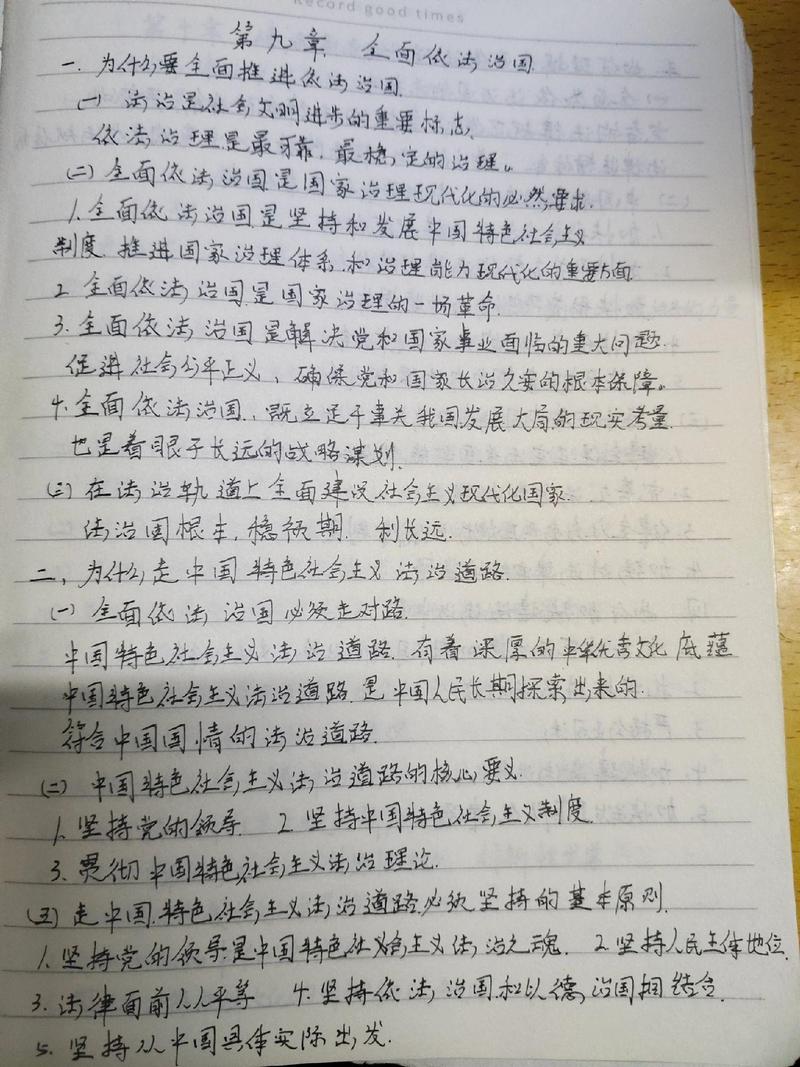 Record good times
第九章 全面依法治国
一.为什么要全面推进依法治国.
(一) 法治是社会文明进步的重要标志.
依法治理是最可靠.最稳定的治理。
(二) 全面依法治国是国家治理现代化的必然要求.
1.全面依法治国是坚持和发展中国特色社会主义
制度.推进国家治理体系和治理能力现代化的重要方面
2.全面依法治国是国家治理的一场革命.
3.全面依法治国是解决党和国家事业面临的重大问题.
促进社会公平正义、确保党和国家长治久安的根本保障。
4.全面依法治国,既立足于事关我国发展大局的现实考量.
也是着眼于长远的战略谋划.
(三) 在法治轨道上全面建设社会主义现代化国家.
法治固根本,稳预期. 利长远.
二、为什么走中国特色社会主义法治道路.
(一) 全面依法治国必须走对路.
中国特色社会主义法治道路.有着深厚的中华优秀文化底蕴
中国特色社会主义法治道路.是中国人民长期探索出来的.
符合中国国情的法治道路.
(二) 中国特色社会主义法治道路的核心要义.
1.坚持党的领导. 2.坚持中国特色社会主义制度.
3.贯彻中国特色社会主义法治理论.
(五) 走中国特色社会主义法治道路必须坚持的基本原则.
1.坚持党的领导是中国特色社会主义法治之魂. 2.坚持人民主体地位.
3.法律面前人人平等 4.坚持依法治国和以德治国相结合.
5.坚持从中国具体实际出发.